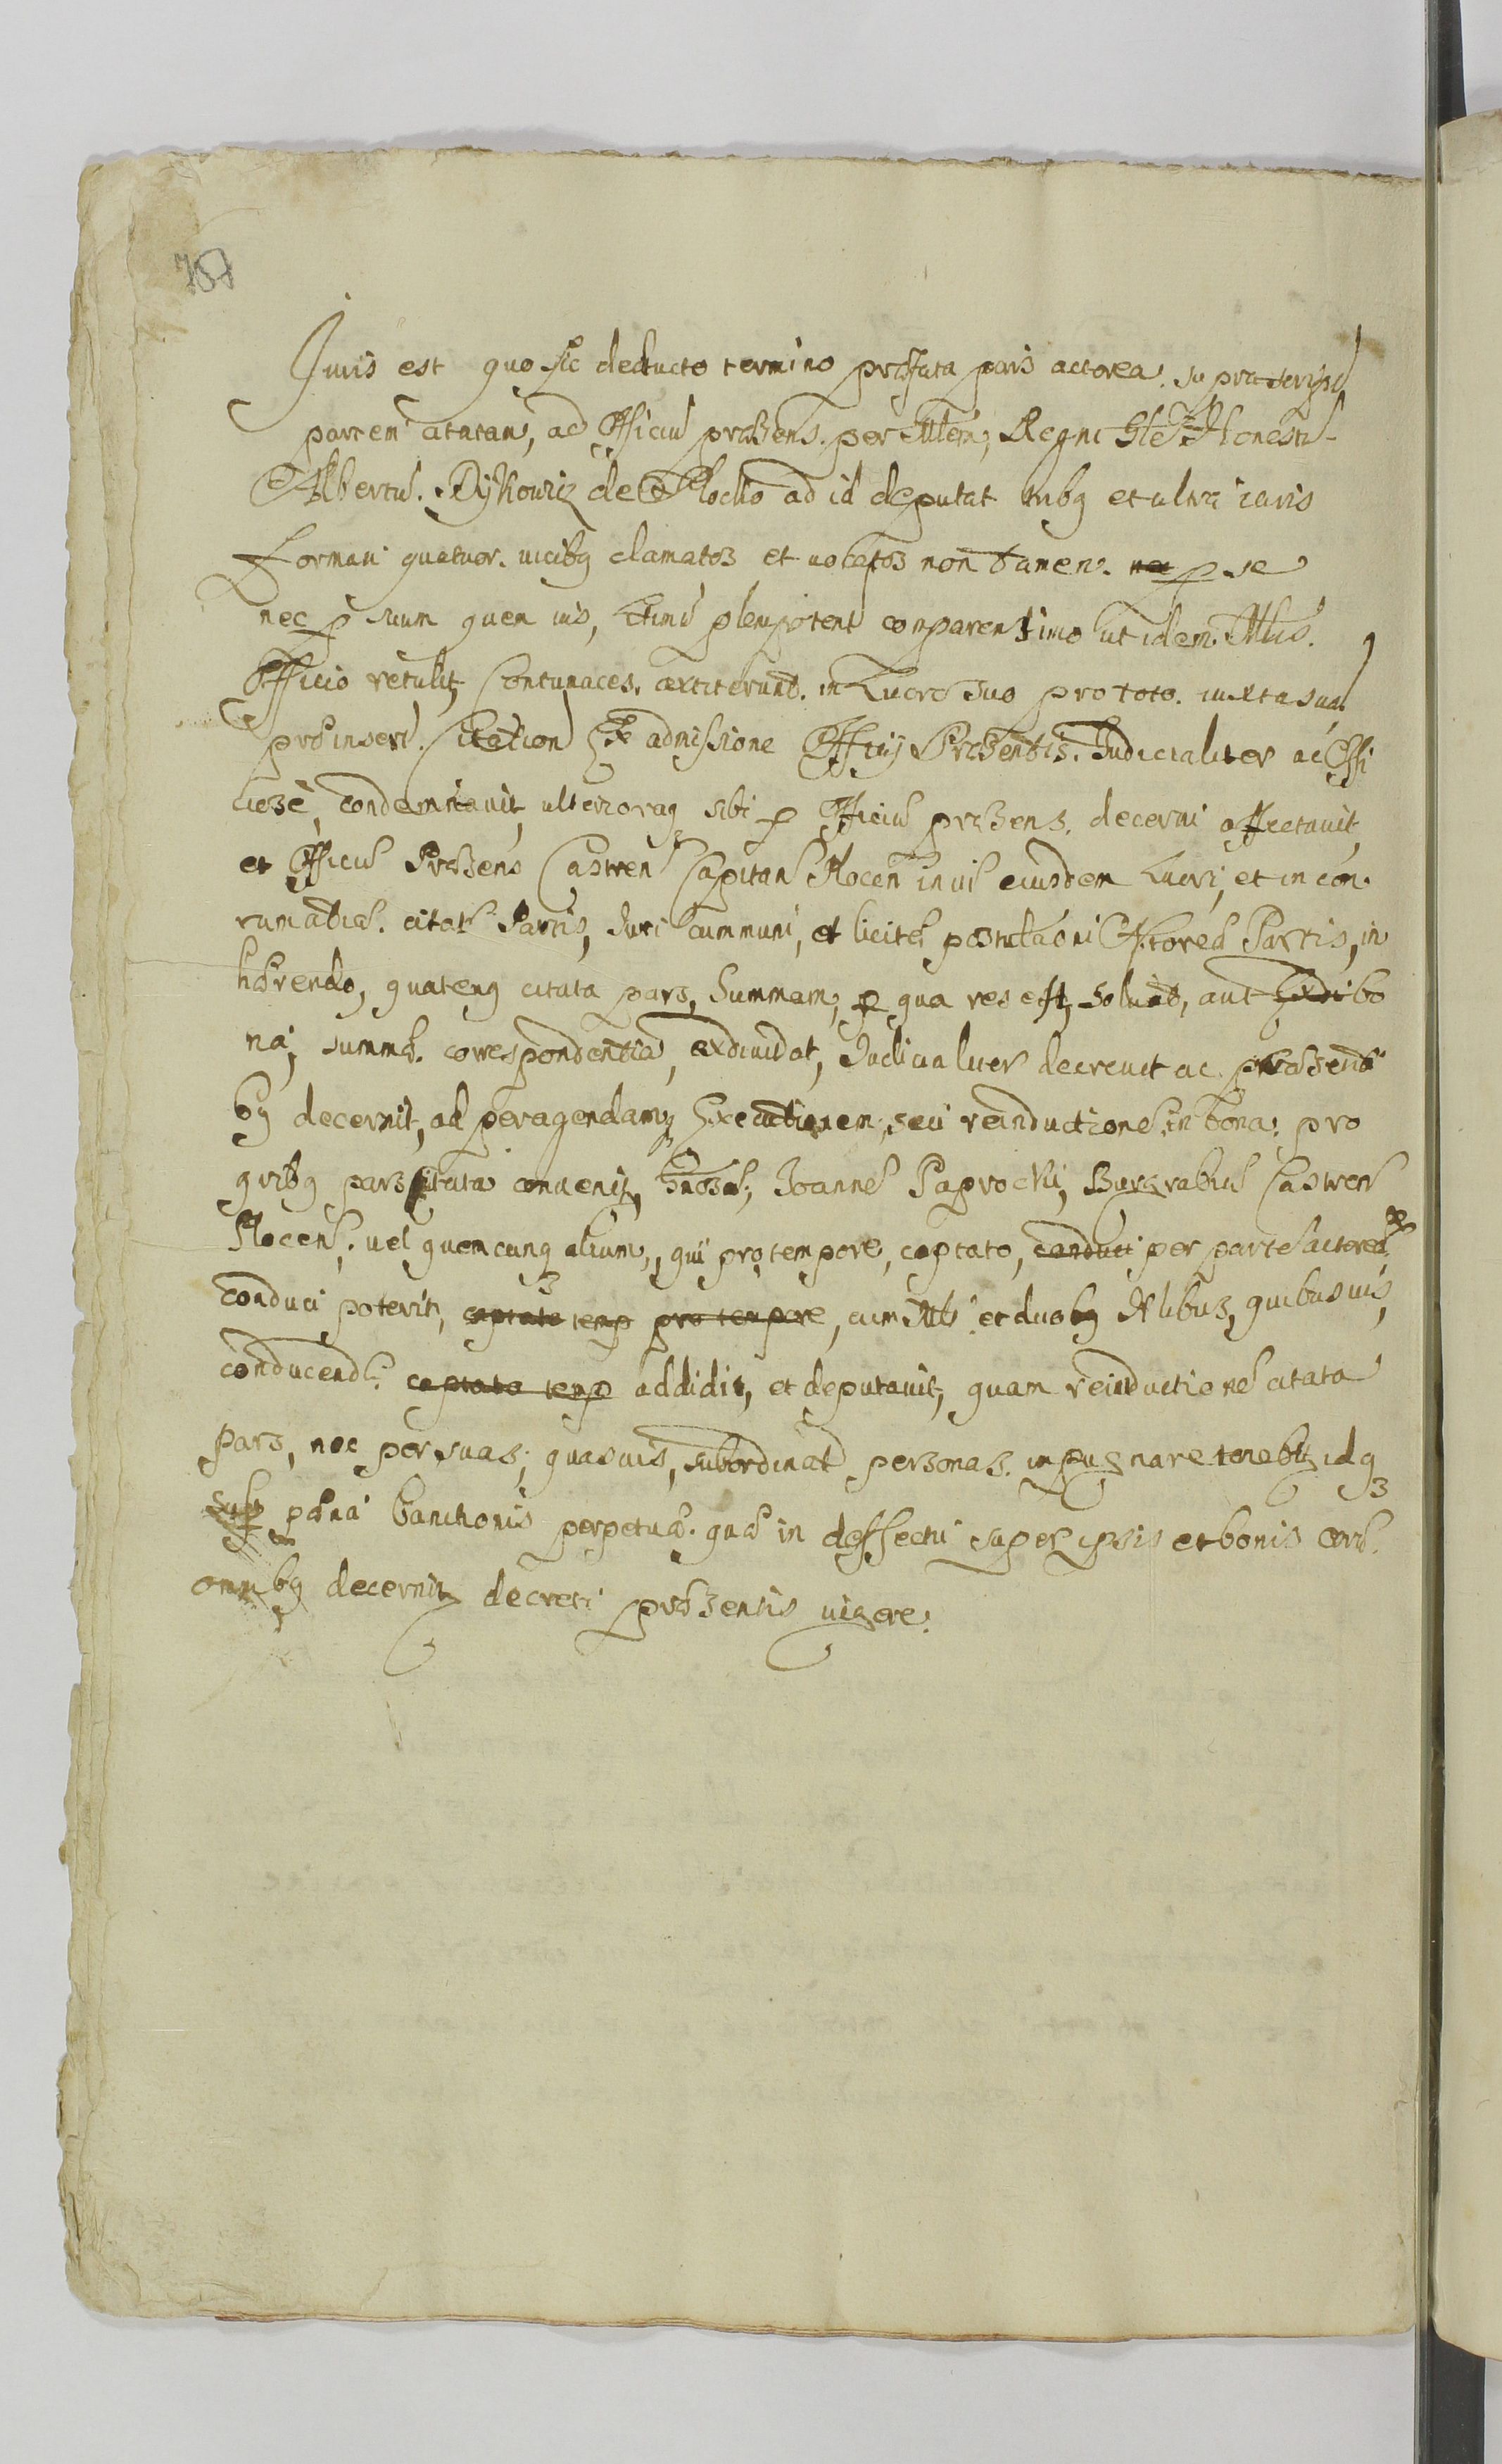 787
Juris est quo sic deducto termino præfata pars actorea suprascrips
partem citatam, ad Officiū præsens per Mlem Regni Gle Honestū
Albertū Dÿkowic de Plocko ad id deputat tribq et ultra iuris
formam quatuor vicibq clamatos et vocatos non tamen nec p se
nec p suum quem uis, Ltimū plenipotent comparen imo ut idem Mlis
Officio retulit, Contumaces extiterunt in Lucro suo pro toto iuxta suæ
præinsert Citation Ex admissione Officij Præsentis Judicialiter ac Offi
ciosè condemnauit ulterioraq sibi p Officiū præsens decerni affectauit
et Officiū Præsens Castren Capitan Plocen in vī eiusdem Lucri, et in con
tumatia citat Partis, Juri cummuni, et licitæ postulaōni Actoreæ Partis, in
hærendo, quatenq citata pars, Summam, p qua res est, soluat, aut Ex bo
na, summæ correspondentia, exdiuidat, Judicialiter decreuit ac præsenti
bq decernit, ad peragendam Executionem, seu reinductionē in bona, pro
quibq pars citata conuenit, Gnosū, Joannē Paprocki, Burgrabiū Castren
Plocen, vel quemcunq alium, qui pro tempore, captato, conduci per partē actoreā
conduci poterit, captato temp pro tempore, cum Mli et duobq Nlibus, quibusuis,
conducend captato temp addidit, et deputauit, quam reinductionē citata
pars, nec per suas, quasuis, subordinat personas inpugnare tenebit idq
sub pœna bannitionis perpetuæ quā in deffectu super ipsis et bonis eorū
omnibq decernit decreti præsentis vigore.